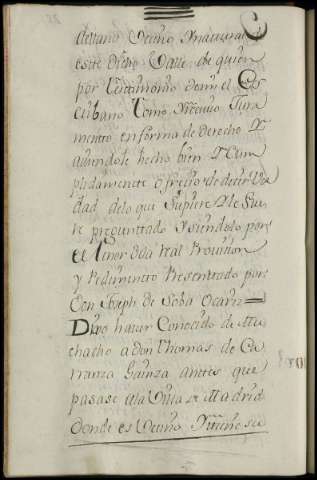 Vecino Y natural de
este dicho Valle de quien
por testimonio de mi el Es
cribano tomo Y recivio Jura
mento en forma de derecho Y
aviendole hecho bien Y cum
plidamente ofrecio de decir Ver
dad de lo que supiere Y le fue
re preguntado Y siendolo por
el tenor de la real Provision
y Pedimento Presentado por
Don Joseph de Soba Ocariz
Dixo haver Conocido de Mu
chacho a don Thomas de Ca
rranza Gainza antes que
pasase a la Villa de Madrid
donde es Vecino